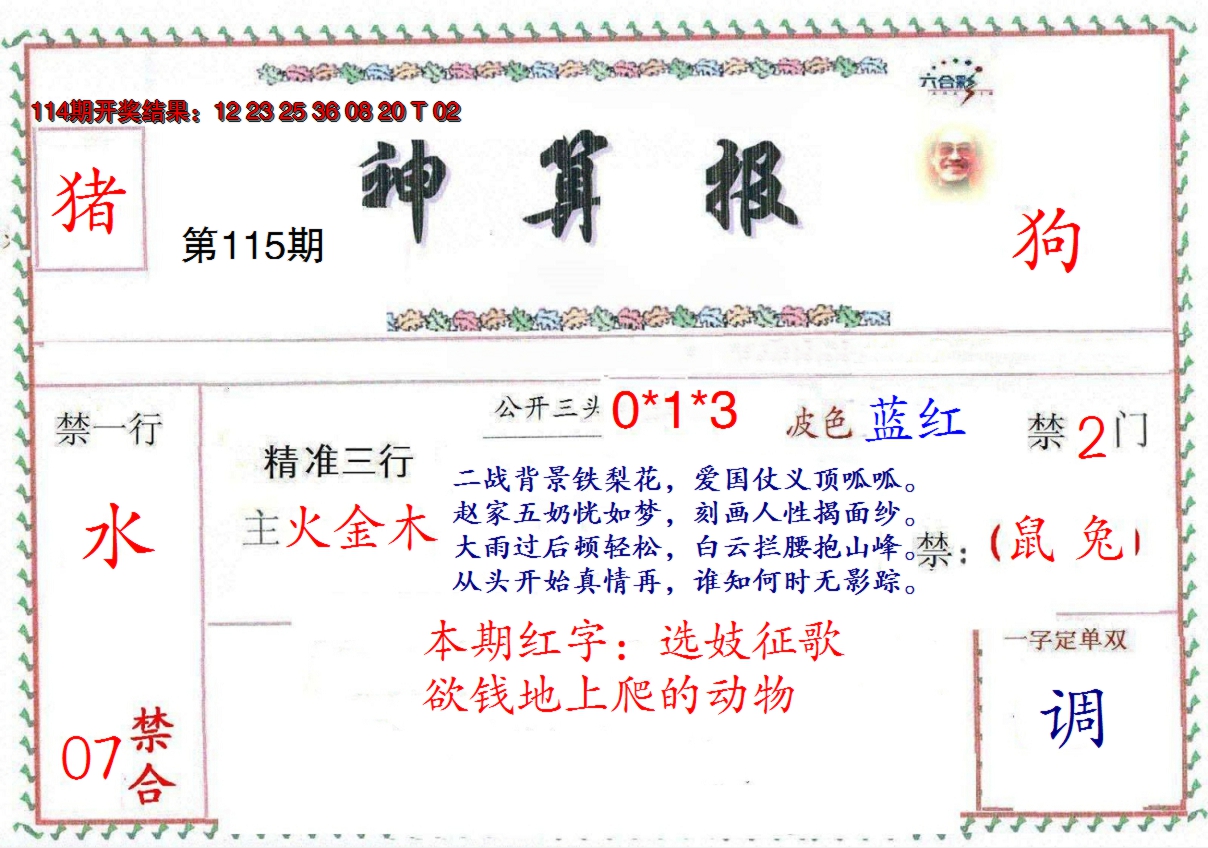 六合彩
114期开奖结果：12 23 25 36 08 20 T 02
神算报
猪
第115期
狗
公开三头 0*1*3
波色 蓝红
禁一行
禁2门
精准三行
主火金木
二战背景铁梨花，爱国仗义顶呱呱。
赵家五奶恍如梦，刻画人性揭面纱。
大雨过后顿轻松，白云拦腰抱山峰。
从头开始真情再，谁知何时无影踪。
水
禁：（鼠 兔）
本期红字：选妓征歌
欲钱地上爬的动物
一字定单双
调
07禁合